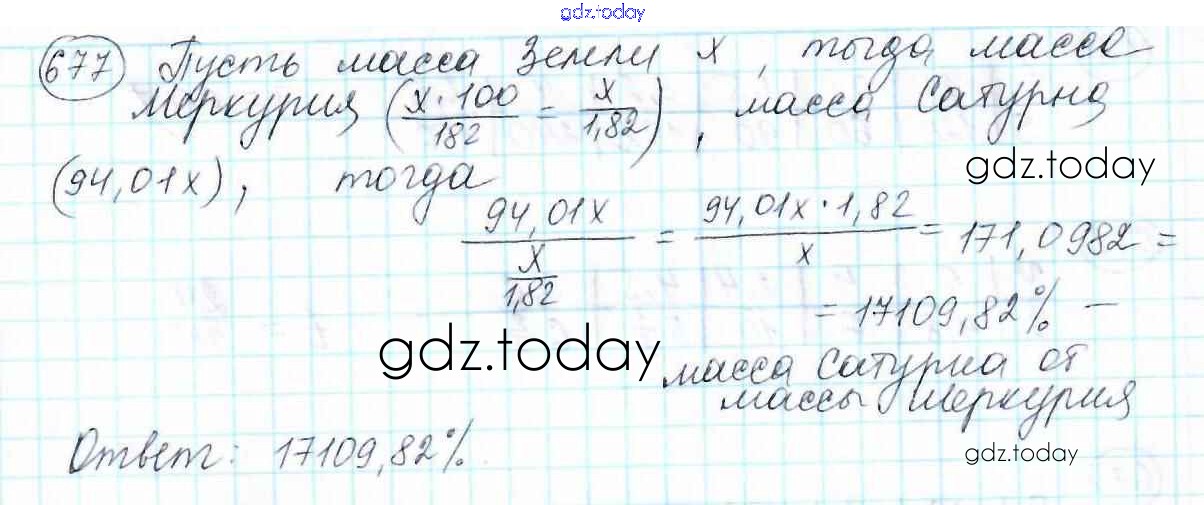 gdz.today
677 Пусть масса Земли x, тогда масса
Меркурия (x·100/182 = x/1,82), масса Сатурна
gdz.today
(94,01x), тогда
94,01x / (x/1,82) = 94,01x·1,82/x = 171,0982 =
= 17109,82% —
gdz.today
масса Сатурна от
массы Меркурия
Ответ: 17109,82%.
gdz.today